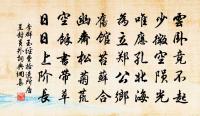 雲卧竟不起
少微空隕光
唯應孔北海
為立鄭公鄉
舊館苔蘚合
幽齋松菊荒
空餘書帶草
日日上階長
李群玉經費拾遺所居
呈封員外詞典網集